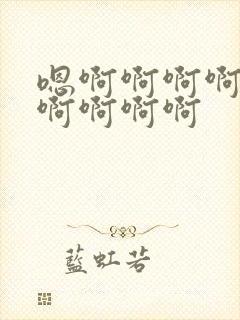 嗯啊啊啊啊
啊啊啊啊
藍虹若